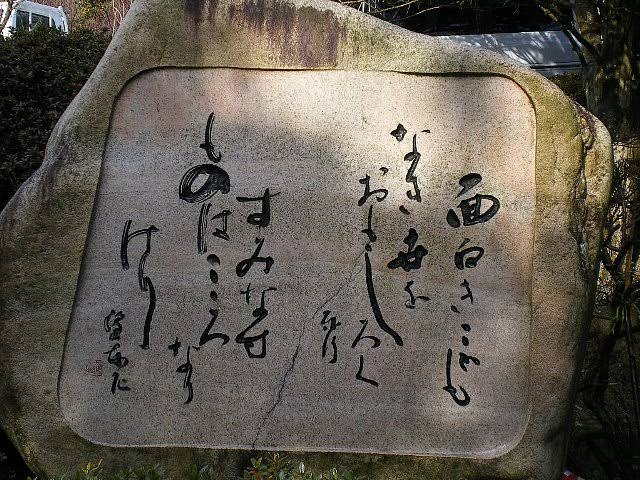 面白きことも
なき世を
おもしろく
東行
すみなす
ものはこころ
なり
けり
望東尼